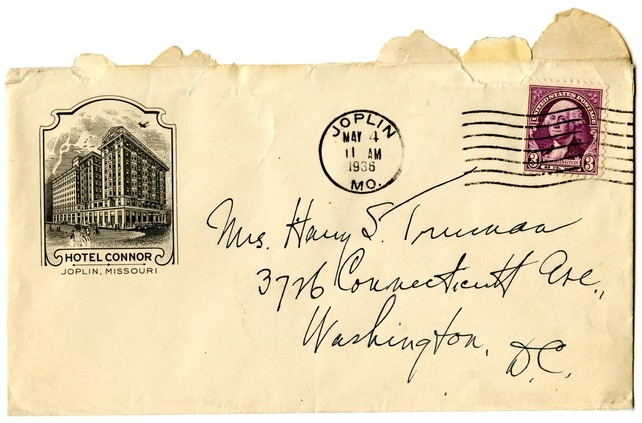 HOTEL CONNOR
JOPLIN, MISSOURI
JOPLIN
MAY 4
11 AM
1936
MO.
UNITED STATES POSTAGE
3 WASHINGTON 3
Mrs. Harry S. Truman
3726 Connecticutt Ave.,
Washington,
D.C.